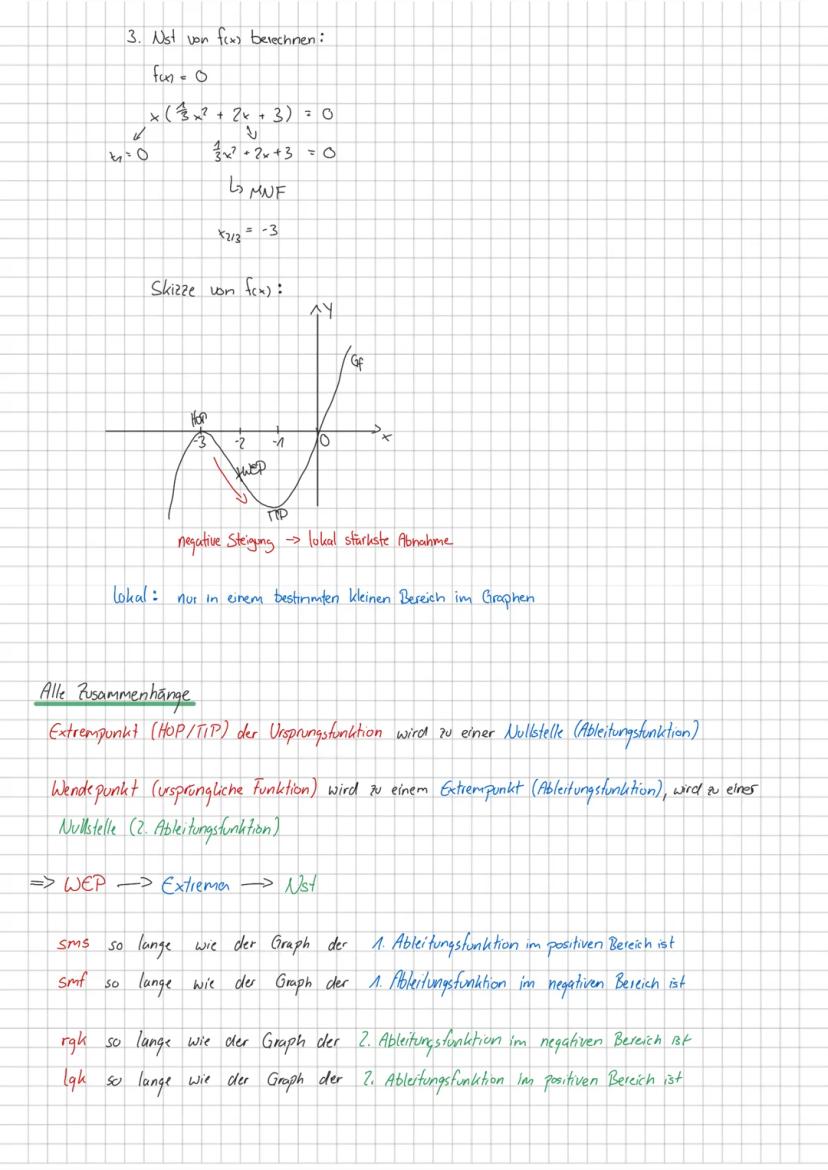 3. Nst von f(x) berechnen:
f(x) = 0
x(1/3 x² + 2x + 3) = 0
x₁ = 0   1/3 x² + 2x + 3 = 0
↳ MNF
x₂/₃ = -3
Skizze von f(x):
y
Gf
HOP
-3 -2 -1 0 x
WEP
TIP
negative Steigung → lokal stärkste Abnahme
lokal: nur in einem bestimmten kleinen Bereich im Graphen
Alle Zusammenhänge
Extrempunkt (HOP/TIP) der Ursprungsfunktion wird zu einer Nullstelle (Ableitungsfunktion)
Wendepunkt (ursprüngliche Funktion) wird zu einem Extrempunkt (Ableitungsfunktion), wird zu einer
Nullstelle (2. Ableitungsfunktion)
=> WEP —> Extrema —> Nst
sms so lange wie der Graph der 1. Ableitungsfunktion im positiven Bereich ist
smf so lange wie der Graph der 1. Ableitungsfunktion im negativen Bereich ist
rgk so lange wie der Graph der 2. Ableitungsfunktion im negativen Bereich ist
lgk so lange wie der Graph der 2. Ableitungsfunktion im positiven Bereich ist